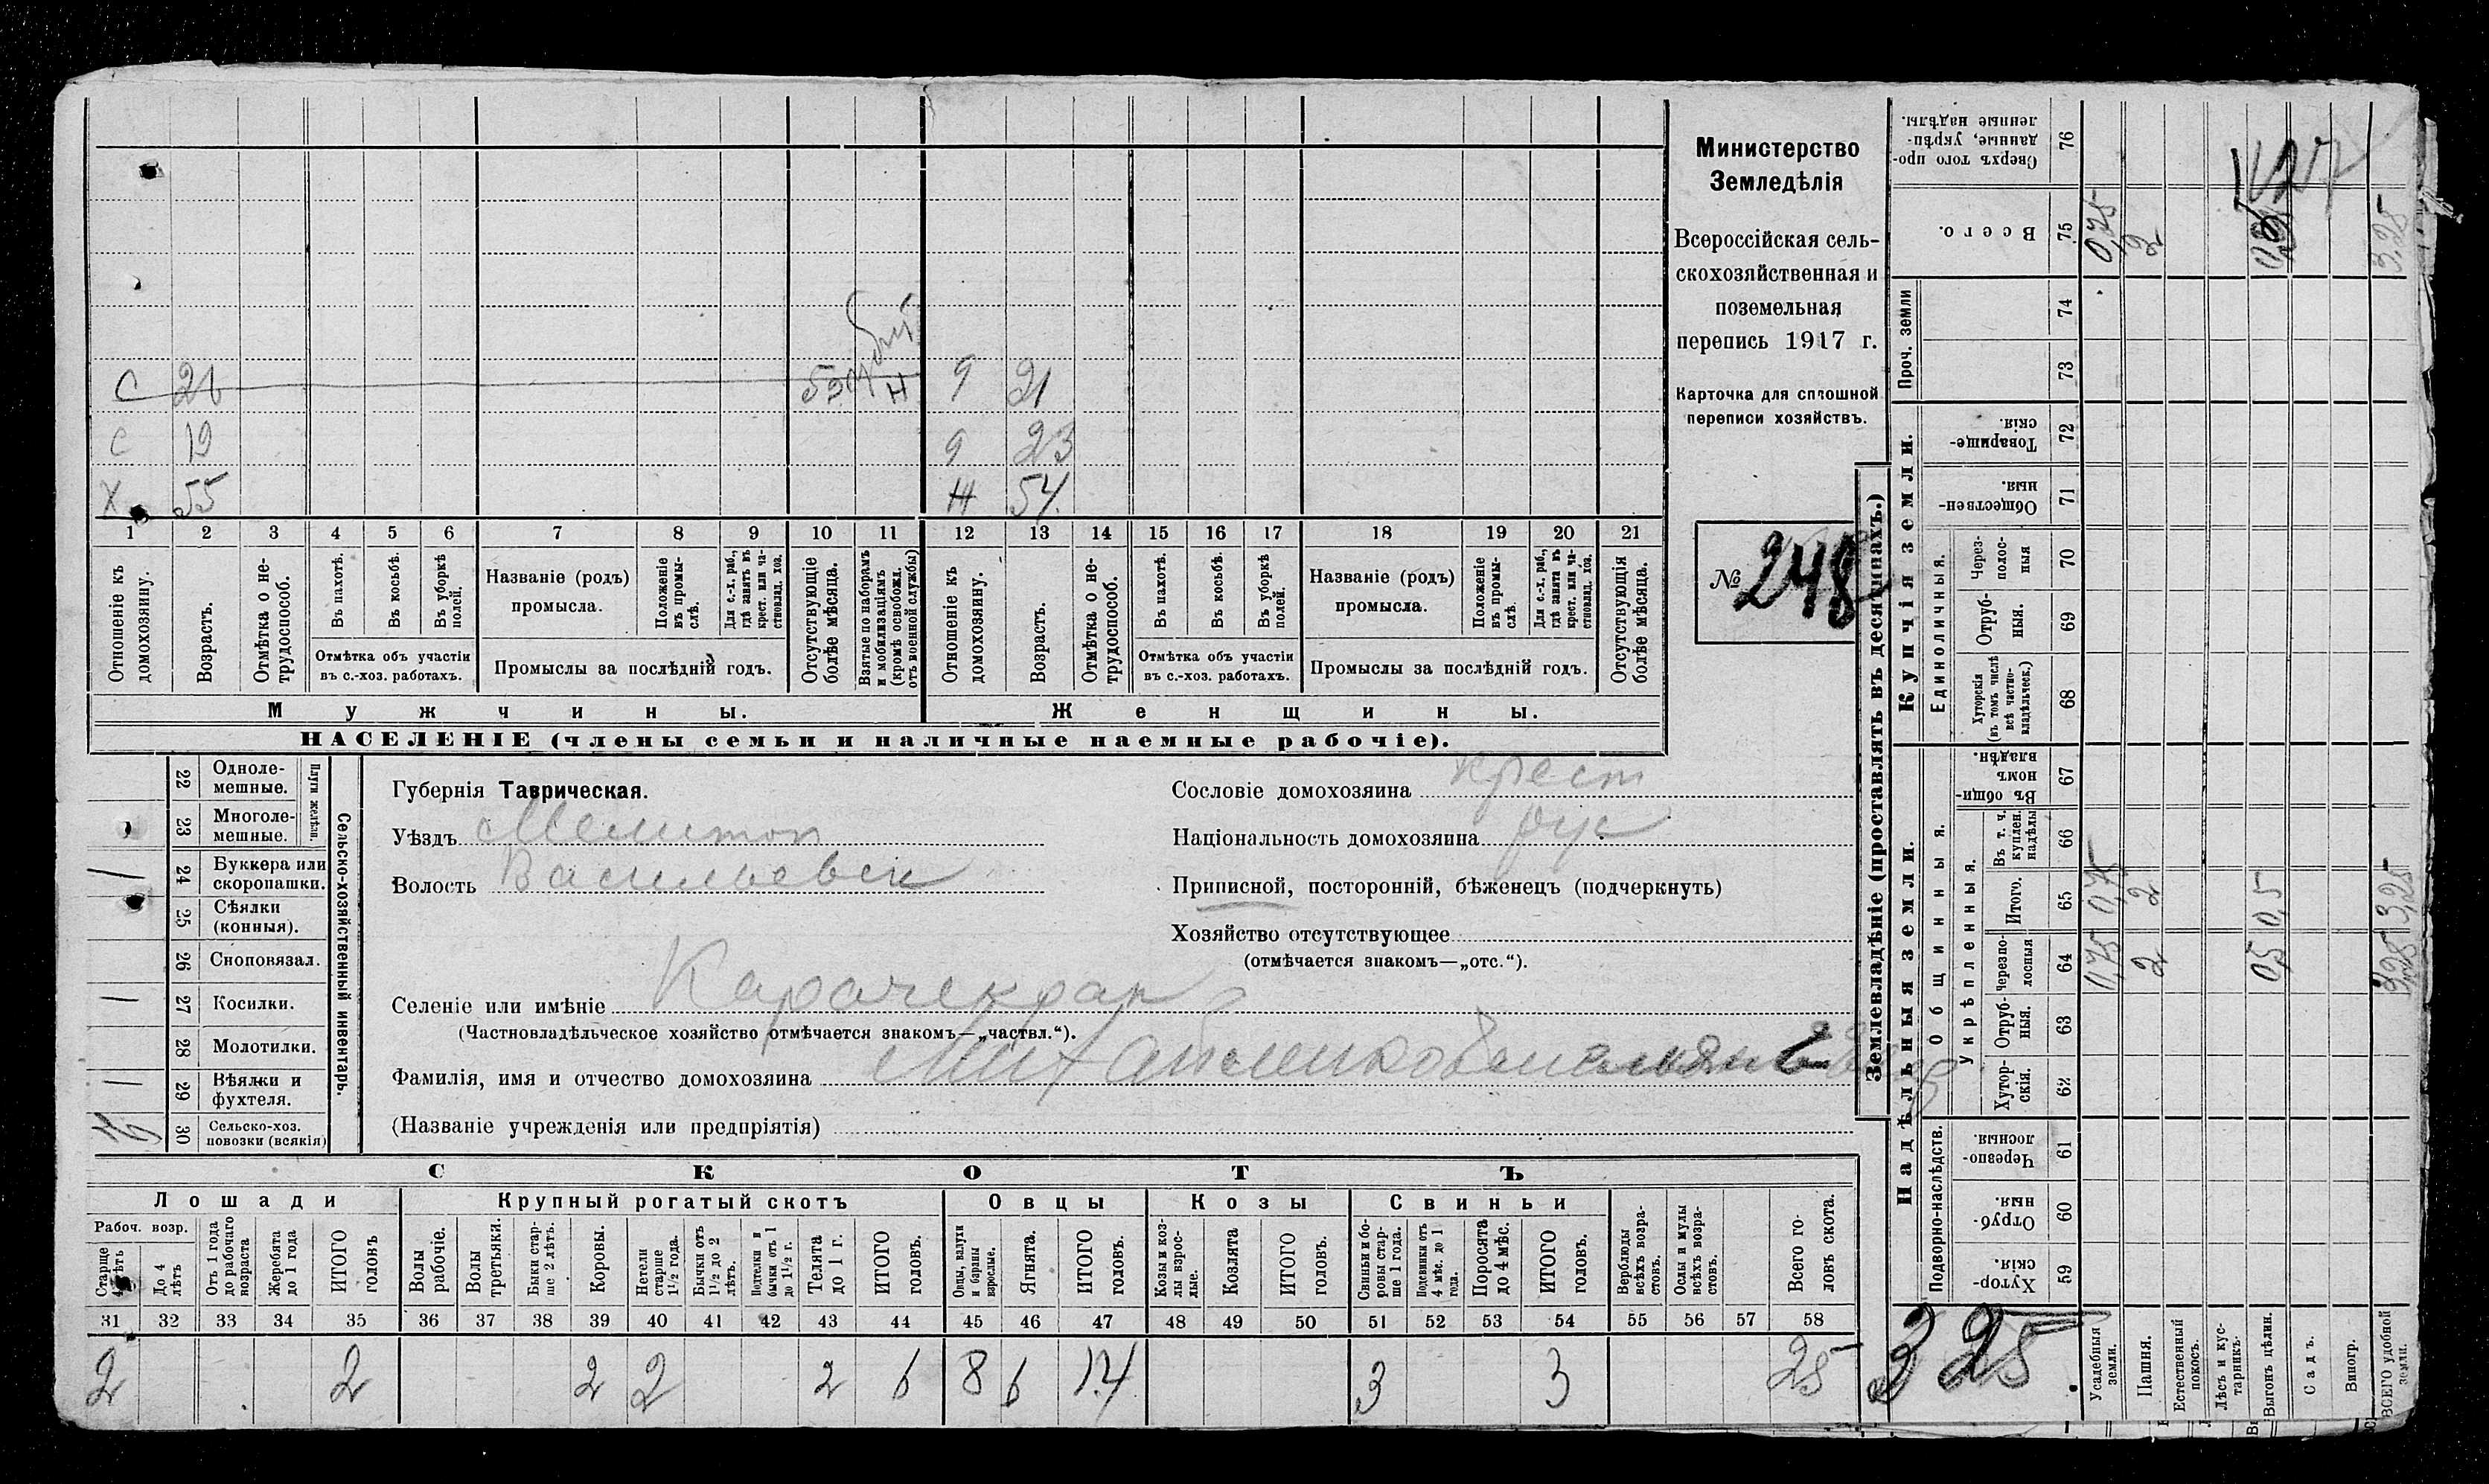 Министерство
Земледѣлія
Всероссійская сель-
скохозяйственная и
поземельная
перепись 1917 г.
Карточка для сплошной
переписи хозяйствъ.
№ 248
С 21 Н 9 21
С 19 9 23
Х 55 Н 54
1 2 3 4 5 6 7 8 9 10 11 12 13 14 15 16 17 18 19 20 21
Отношеніе къ домохозяину.
Возрастъ.
Отмѣтка о не-трудоспособ.
Въ пахотѣ.
Въ косьбѣ.
Въ уборкѣ полей.
Отмѣтка объ участіи
въ с.-хоз. работахъ.
Названіе (родъ)
промысла.
Положеніе въ промы-слѣ.
Для с.-х. раб., гдѣ занятъ въ крест. или ча-стновлад. хоз.
Промыслы за послѣдній годъ.
Отсутствующіе болѣе мѣсяца.
Взятые по наборамъ и мобилизаціямъ (кромѣ освобожд. отъ военной службы)
Отношеніе къ домохозяину.
Возрастъ.
Отмѣтка о не-трудоспособ.
Въ пахотѣ.
Въ косьбѣ.
Въ уборкѣ полей.
Отмѣтка объ участіи
въ с.-хоз. работахъ.
Названіе (родъ)
промысла.
Положеніе въ промы-слѣ.
Для с.-х. раб., гдѣ занята въ крест. или ча-стновлад. хоз.
Промыслы за послѣдній годъ.
Отсутствующія болѣе мѣсяца.
Мужчины. Женщины.
НАСЕЛЕНІЕ (члены семьи и наличные наемные рабочіе).
Сельско-хозяйственный инвентарь.
Плуги желѣзн.
22 Одноле-мешные.
23 Многоле-мешные.
24 Буккера или скоропашки.
25 Сѣялки (конныя).
26 Сноповязал.
27 Косилки.
28 Молотилки.
29 Вѣялки и фухтеля.
30 Сельско-хоз. повозки (всякія)
Губернія Таврическая.
Уѣздъ Мелитоп
Волость Васильевск
Селеніе или имѣніе Карачекрак
(Частновладѣльческое хозяйство отмѣчается знакомъ—„частвл.“).
Фамилія, имя и отчество домохозяина
(Названіе учрежденія или предпріятія)
Сословіе домохозяина крест
Національность домохозяина рус
Приписной, посторонній, бѣженецъ (подчеркнуть)
Хозяйство отсутствующее
(отмѣчается знакомъ—„отс.“).
СКОТЪ
Лошади Крупный рогатый скотъ Овцы Козы Свиньи
Рабоч. возр.
Старше 4 лѣтъ
До 4 лѣтъ
Отъ 1 года до рабочаго возраста
Жеребята до 1 года
ИТОГО головъ
Волы рабочіе.
Волы третьяки.
Быки стар-ше 2 лѣтъ.
Коровы.
Нетели старше 1½ года.
Бычки отъ 1½ до 2 лѣтъ.
Подтелки и бычки отъ 1 до 1½ г.
Телята до 1 г.
ИТОГО головъ.
Овцы, валухи и бараны взрослые.
Ягнята.
ИТОГО головъ.
Козы и коз-лы взрос-лые.
Козлята
ИТОГО головъ.
Свиньи и бо-ровы стар-ше 1 года.
Подсвинки отъ 4 мѣс. до 1 года.
Поросята до 4 мѣс.
ИТОГО головъ.
Верблюды всѣхъ возра-стовъ.
Ослы и мулы всѣхъ возра-стовъ.
Всего го-ловъ скота.
31 32 33 34 35 36 37 38 39 40 41 42 43 44 45 46 47 48 49 50 51 52 53 54 55 56 57 58
2 2 2 2 2 6 8 6 14 3 3 25
Землевладѣніе (проставлять въ десятинахъ.)
Купчія земли.
Надѣльныя земли.
Сверхъ того про-данные, укрѣп-ленные надѣлы. 76
Всего. 75 0,75 2 3,25
Проч. земли 74 73
Товарище-скія. 72
Обществен-ныя. 71
Единоличныя.
Через-полос-ныя 70
Отруб-ныя. 69
Хуторскія (въ томъ числѣ всѣ частно-владѣльческ.) 68
Общинныя.
Въ общи-номъ владѣн. 67
Укрѣпленныя.
Въ т. ч. куплен. надѣлы 66
Итого. 65 0,75 2 0,5 3,25
Черезпо-лосныя 64 0,75 2 0,5 3,25
Отруб-ныя. 63
Хутор-скія. 62
Подворно-наслѣдств.
Черезпо-лосныя. 61
Отруб-ныя. 60
Хутор-скія. 59
3 25
Усадебныя земли.
Пашня.
Естественный покосъ.
Лѣсъ и кус-тарникъ.
Выгонъ цѣлин.
Садъ.
Виногр.
ВСЕГО удобной земли.